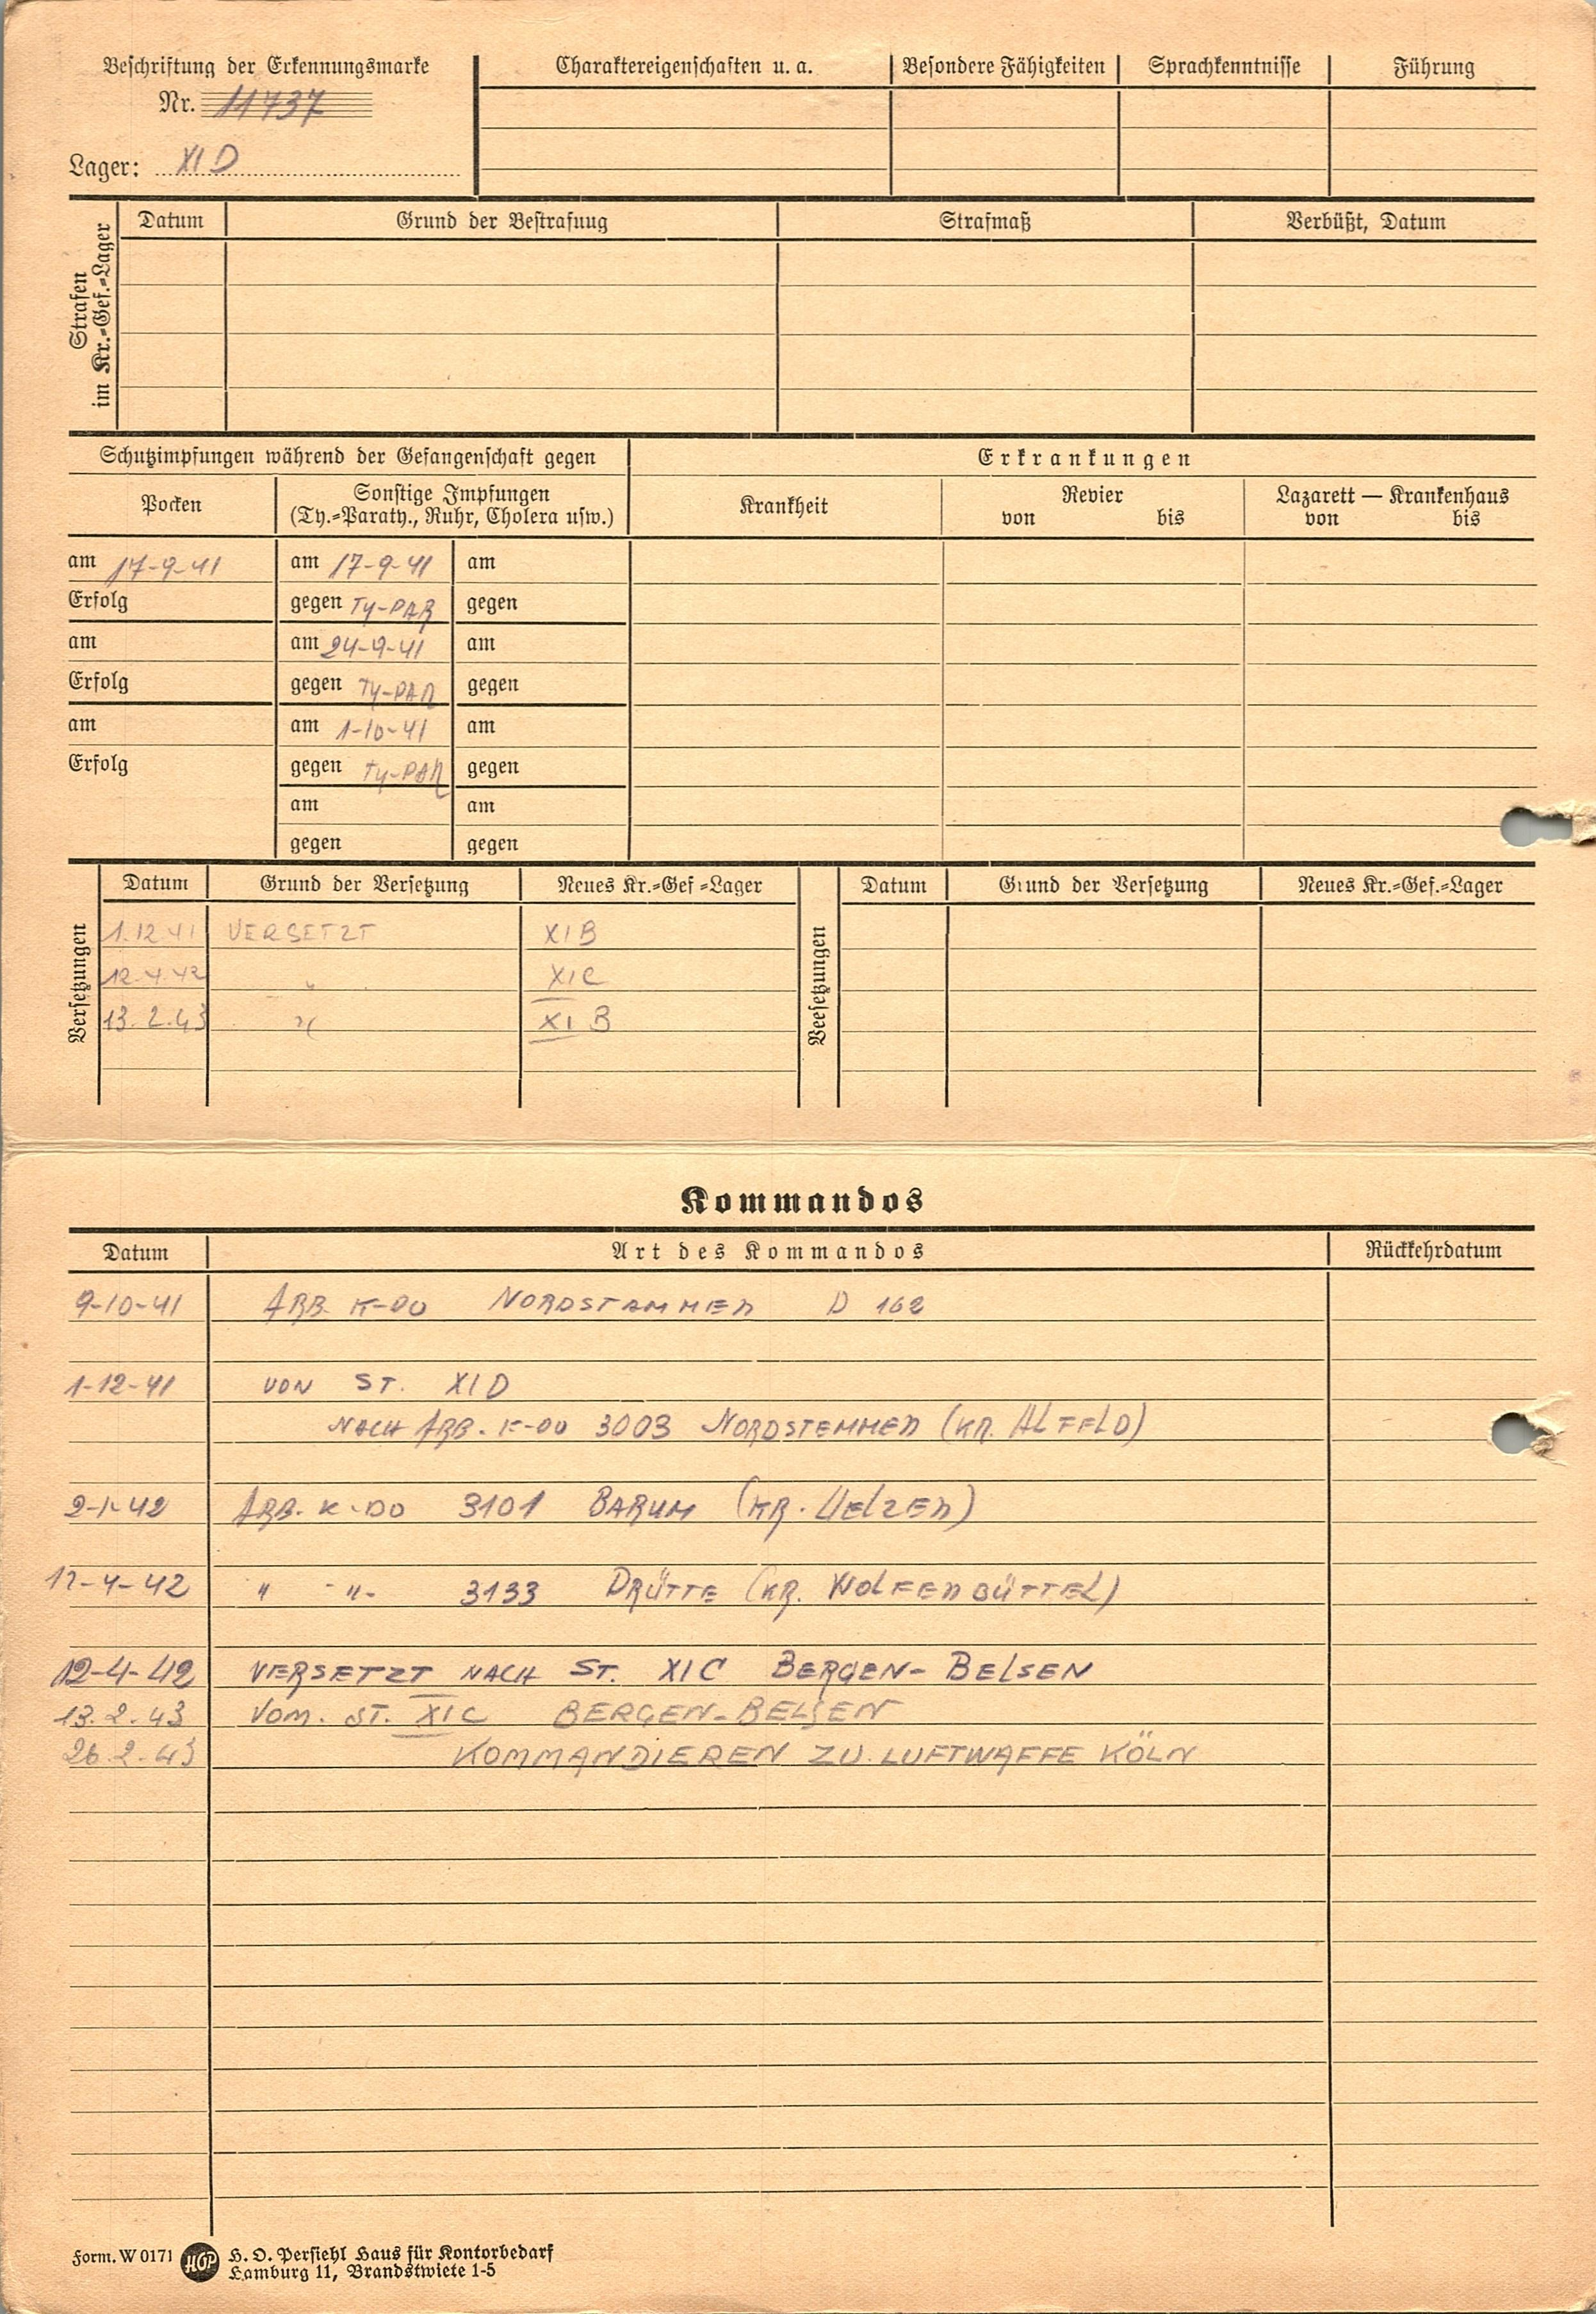 Beschriftung der Erkennungsmarke
Nr. 11737
Lager: XI D
Charaktereigenschaften u. a. Besondere Fähigkeiten Sprachkenntnisse Führung
Strafen
im Kr.=Gef.=Lager
Datum Grund der Bestrafung Strafmaß Verbüßt, Datum
Schutzimpfungen während der Gefangenschaft gegen
Pocken
Sonstige Impfungen
(Ty.=Paraty., Ruhr, Cholera usw.)
Erkrankungen
Krankheit
Revier
von bis
Lazarett — Krankenhaus
von bis
am 17-9-41 am 17-9-41 am
Erfolg gegen TY-PAR gegen
am am 24-9-41 am
Erfolg gegen TY-PAR gegen
am am 1-10-41 am
Erfolg gegen TY-PAR gegen
am am
gegen gegen
Versetzungen
Datum Grund der Versetzung Neues Kr.=Gef=Lager
1.12 41 VERSETZT XI B
12.4.42 " XI C
13.2.43 " XI B
Veesetzungen
Datum Grund der Versetzung Neues Kr.=Gef.=Lager
Kommandos
Datum Art des Kommandos Rückkehrdatum
9-10-41 ARB. K-DO NORDSTAMMEN D 162
1-12-41 VON ST. XI D
NACH ARB. K-DO 3003 NORDSTEMMEN (KR. ALFELD)
2-1-42 ARB. K-DO 3101 BARUM (KR. UELZEN)
12-4-42 " -"- 3133 DRÜTTE (KR. WOLFENBÜTTEL)
12-4-42 VERSETZT NACH ST. XI C BERGEN-BELSEN
13.2.43 VOM. ST. XI C BERGEN-BELSEN
26.2.43 KOMMANDIEREN ZU. LUFTWAFFE KÖLN
Form. W 0171 HOP H. O. Persiehl Haus für Kontorbedarf
Hamburg 11, Brandstwiete 1-5